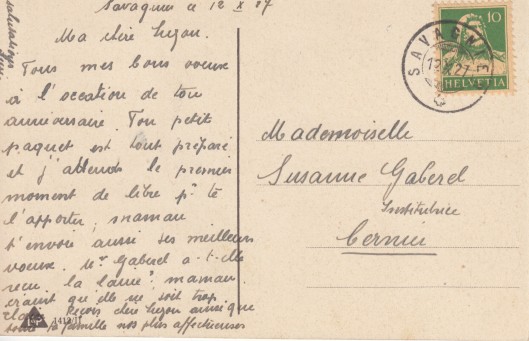 Savagnier le 12 X 27
Ma chère Suzon.
Tous mes bons voeux
à l'occation de ton
anniversaire. Ton petit
paquet est tout préparé
et j'attends le premier
moment de libre pr te
l'apporter, maman
t'envoie aussi ses meilleurs
voeux. Mme Gaberel a-t-elle
reçu la laine? maman
craint qu'elle ne soit trop
Reçois chère Suzon ainsi que
toute ta famille nos plus affectueuses
salutations
1412/11
10
HELVETIA
SAVAGNIER
Mademoiselle
Susanne Gaberel
Institutrice
Cernier